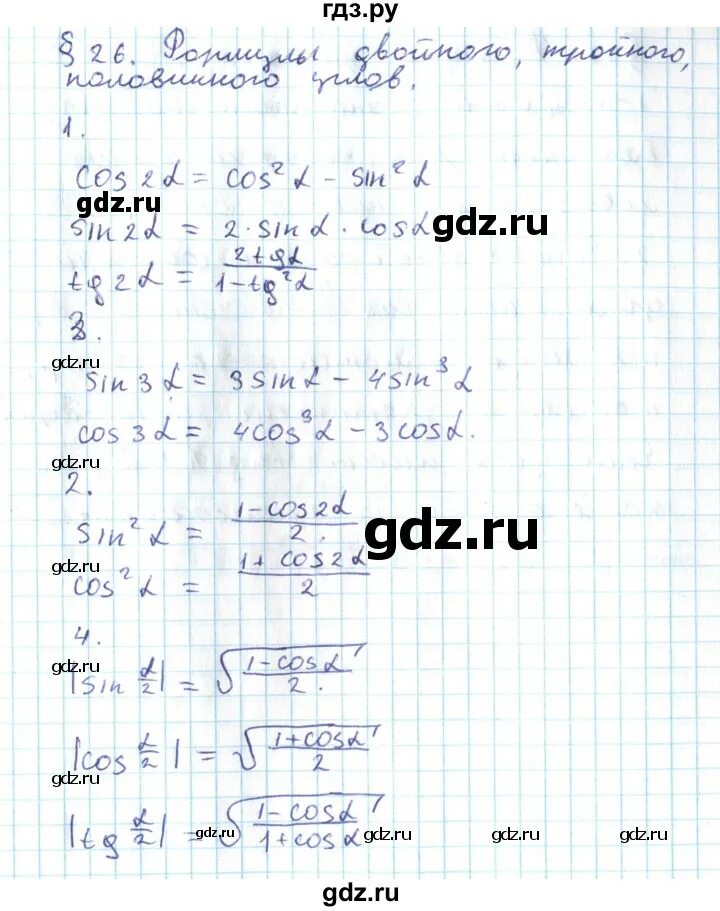 гдз.ру
§ 26. Формулы двойного, тройного,
половинного углов.
1.
cos 2α = cos²α − sin²α
gdz.ru
sin 2α = 2·sin α · cos α
gdz.ru
tg 2α = 2tgα / 1−tg²α
3.
gdz.ru
sin 3α = 3 sin α − 4 sin³α
cos 3α = 4cos³α − 3 cos α.
gdz.ru
2.
sin²α = 1−cos 2α / 2.
gdz.ru
gdz.ru
cos²α = 1+ cos 2α / 2
4.
gdz.ru
|sin α/2| = √(1−cos α / 2).
|cos α/2| = √(1+cos α / 2)
gdz.ru
|tg α/2| = √(1−cos α / 1+cos α)
gdz.ru gdz.ru gdz.ru gdz.ru
gdz.ru